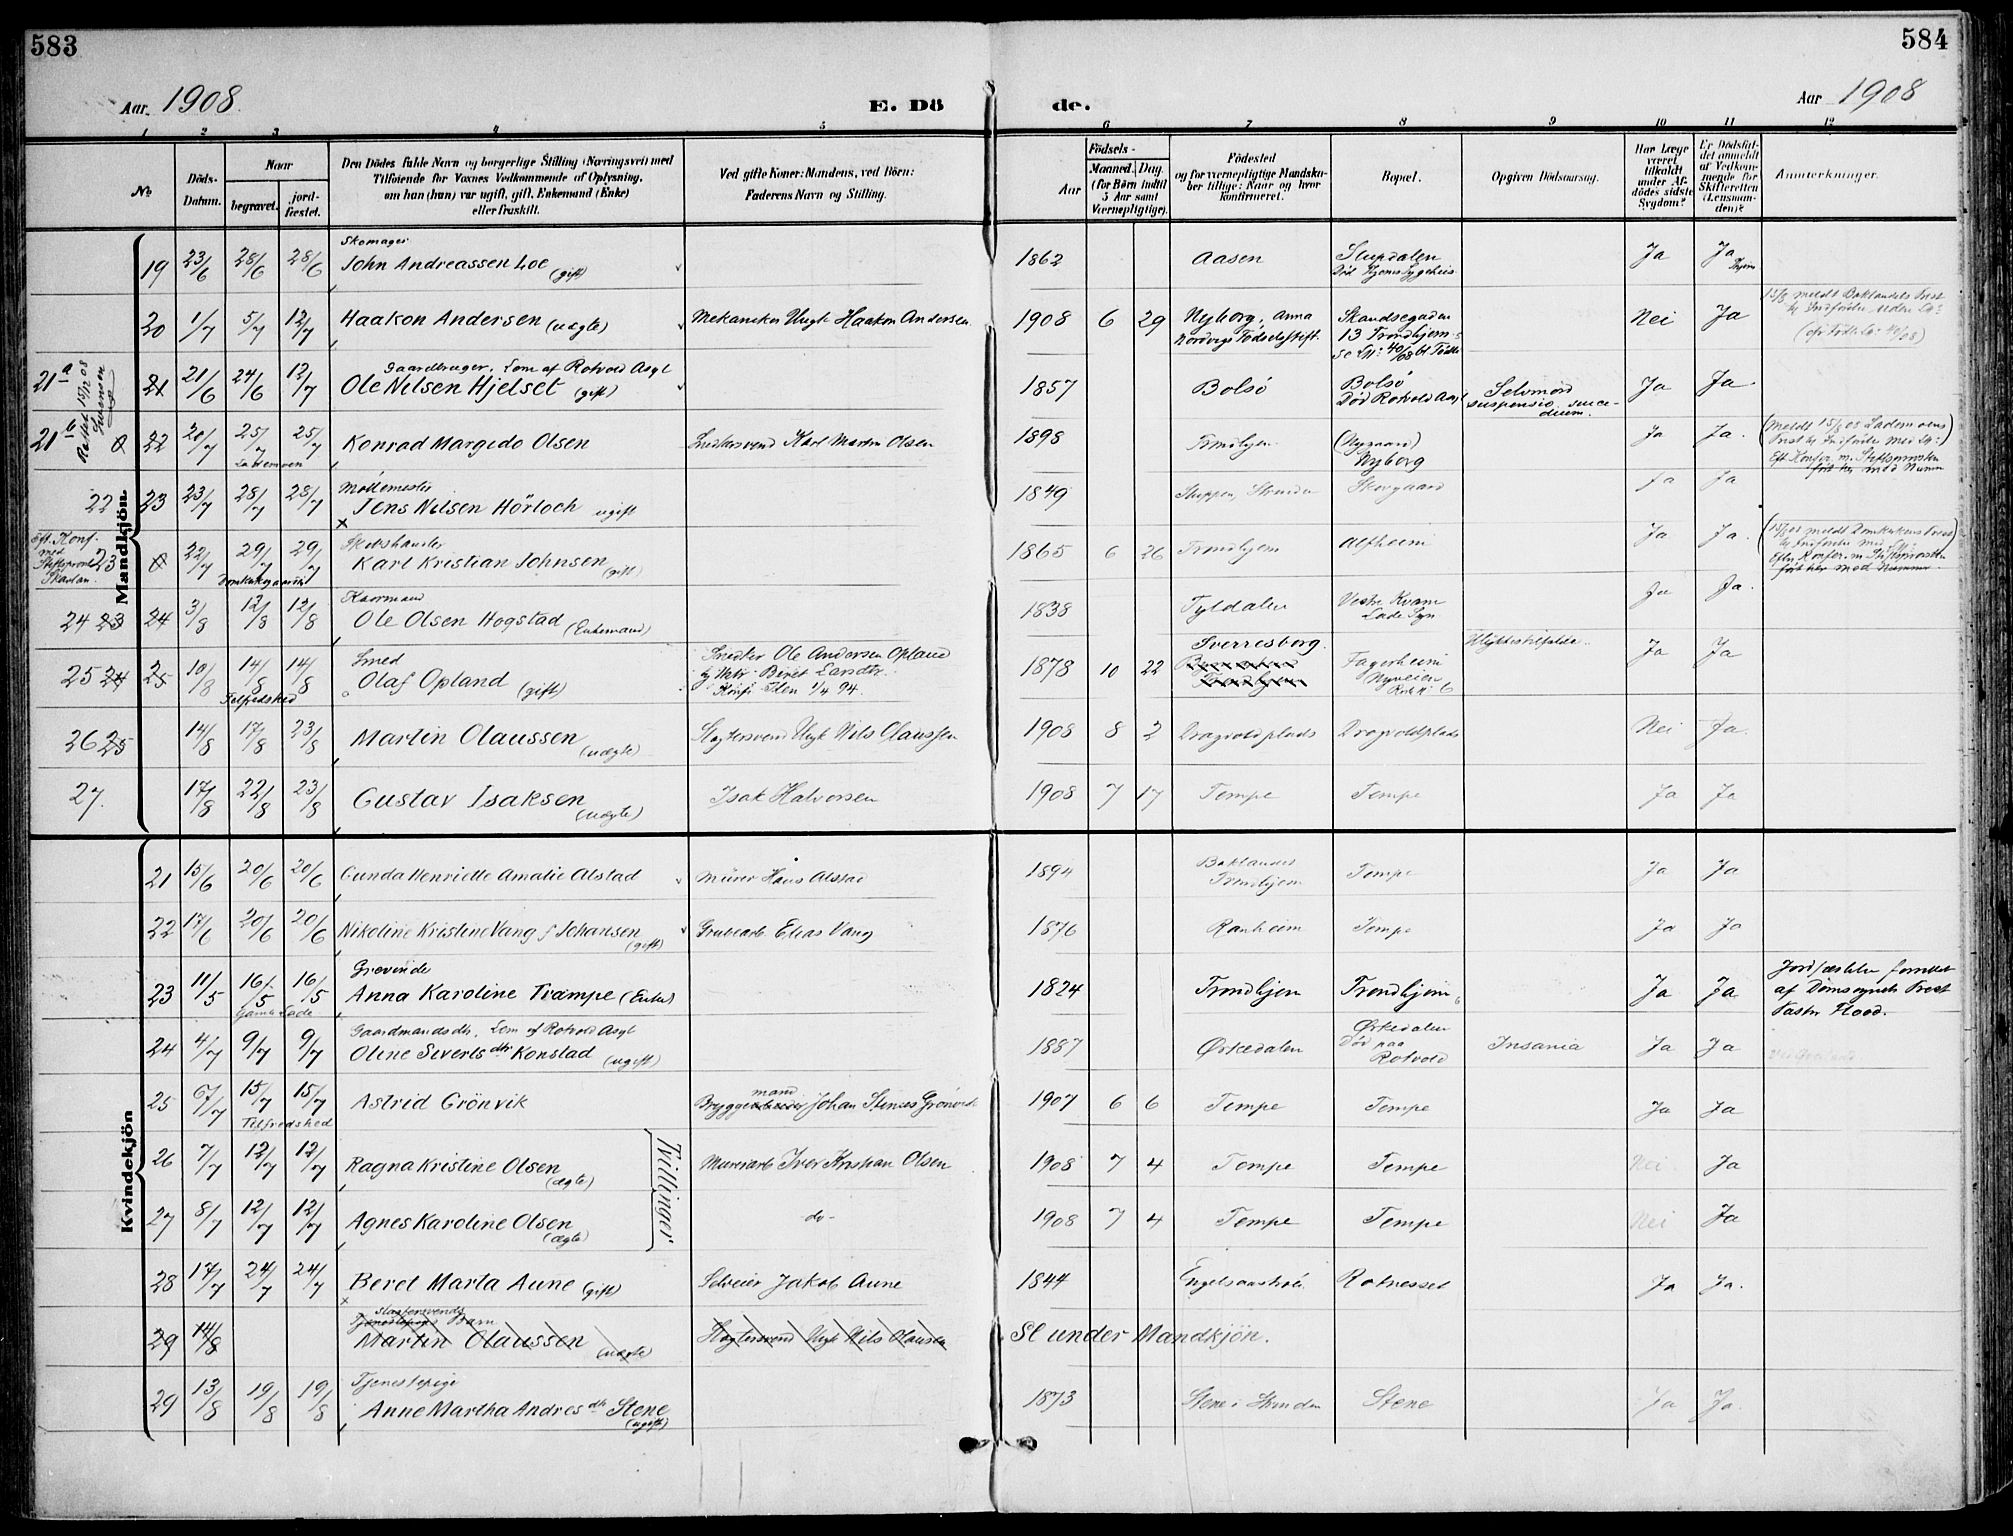 583
584
Aar 1908.
E. Dö
de.
Aar 1908
1 2 3 4 5 6 7 8 9 10 11 12
No
Döds-Datum.
Naar
begravet.
jord-fæstet.
Den Dödes fulde Navn og borgerlige Stilling (Næringsvei) med
Tilføiende for Voxnes Vedkommende af Oplysning,
om han (hun) var ugift, gift, Enkemand (Enke)
eller fraskilt.
Ved gifte Koner: Mandens, ved Börn:
Faderens Navn og Stilling.
Födsels-
Aar
Maaned. Dag.
(for Börn indtil
5 Aar samt
Værnepligtige).
Födested
og for værnepligtige Mandska-
ber tillige: Naar og hvor
konfirmeret.
Bopæl.
Opgiven Dödsaarsag.
Har Læge
været
tilkaldt
under Af-
dödes sidste
Sygdom?
Er Dödsfal-
det anmeldt
af Vedkom-
mende for
Skifteretten
(Lensman-
den)?
Anmærkninger.
Mandkjön
Skomager
19 23/6 28/6 28/6 John Andreassen Loe (gift) 1862 Aasen Ja Ja
20 1/7 5/7 12/7 Haakon Andersen (uægte) Mekaniker Ungk Haakon Andersen 1908 6 29 Nyborg, Anna Skandsegaden Nei Ja
13 Trondhjem
Gaardbruger, Lem af Rotvold Asyl
21a 21 21/6 24/6 12/7 Ole Nilsen Hjelset (gift) 1857 Bolsö Bolsö Selvmord Ja Ja
Död Rotvold Asyl
Rettet 15/12 08
21b 22 20/7 25/7 25/7 Konrad Margido Olsen Snedkersvend Karl Martin Olsen 1898 Trondhjem (Nygaard) Ja Ja.
Lademoen
Nyborg
Möllemester
22 23 23/7 28/7 28/7 Jens Nilsen Hörloch ugift 1849 Skovgaard Ja Ja
23 22/7 29/7 29/7 Karl Kristian Johnsen (gift) 1865 6 26 Trondhjem Alfheim Ja Ja.
Kaarmand
24 23 24 3/8 12/8 12/8 Ole Olsen Hogstad (Enkemand) 1838 Tyldalen Vestre Kvam Ja Ja.
Smed
25 24 25 10/8 14/8 14/8 Olaf Opland (gift) Snedker Ole Andersen Opland 1878 10 22 Sverresborg. Fagerheim Ulykkestilfælde Ja Ja
Tilfredshed
Nyveien
26 25 14/8 17/8 23/8 Martin Olaussen (uægte) Slagtersvend Ungk Nils Olaussen 1908 8 2 Dragvoldplads Dragvoldplads Nei Ja.
27. 17/8 22/8 23/8 Gustav Isaksen (uægte) Isak Halvorsen 1908 7 17 Tempe Tempe Ja Ja
Kvindekjön
21 15/6 20/6 20/6 Gunda Henriette Amalie Alstad Murer Hans Alstad 1894 Baklandet Trondhjem Tempe Ja Ja
22 17/6 20/6 20/6 Nikoline Kristine Vang f Johansen (gift) Grubearb. Elias Vang 1876 Ranheim Tempe Ja Ja
Grevinde
23 11/5 16/5 16/5 Anna Karoline Trampe (Enke) 1824 Trondhjem Trondhjem Ja Ja Jordfæstelse forrettet
af Domsognets Prest
Pastor Flood.
Gaardmandsdtr, Lem af Rotvold Asyl
24 4/7 9/7 9/7 Oline Siverts dtr Konstad (ugift) 1887 Ørkedalen Ørkedalen Insania Ja Ja
Död paa
Rotvold
25 6/7 15/7 15/7 Astrid Grönvik Bryggemand Johan Grönvik 1907 6 6 Tempe Tempe Ja Ja
Tilfredshed
26 7/7 12/7 12/7 Ragna Kristine Olsen (ægte) Murerarb Iver Kristian Olsen 1908 7 4 Tempe Tempe Nei Ja
Tvillinger
27 8/7 12/7 12/7 Agnes Karoline Olsen (ægte) do- 1908 7 4 Tempe Tempe Nei Ja
28 17/7 24/7 24/7 Beret Marta Aune (gift) Selveier Jakob Aune 1844 Rotnesset Ja Ja.
Slagtersvends
Barn
29 14/8 Martin Olaussen (uægte) Slagtersvend Ungk Nils Olaussen Se under Mandkjön.
Tjenestepige
29 13/8 19/8 19/8 Anne Martha Andres dtr Stene (ugift) 1873 Stene i Strinden Stene Ja Ja.